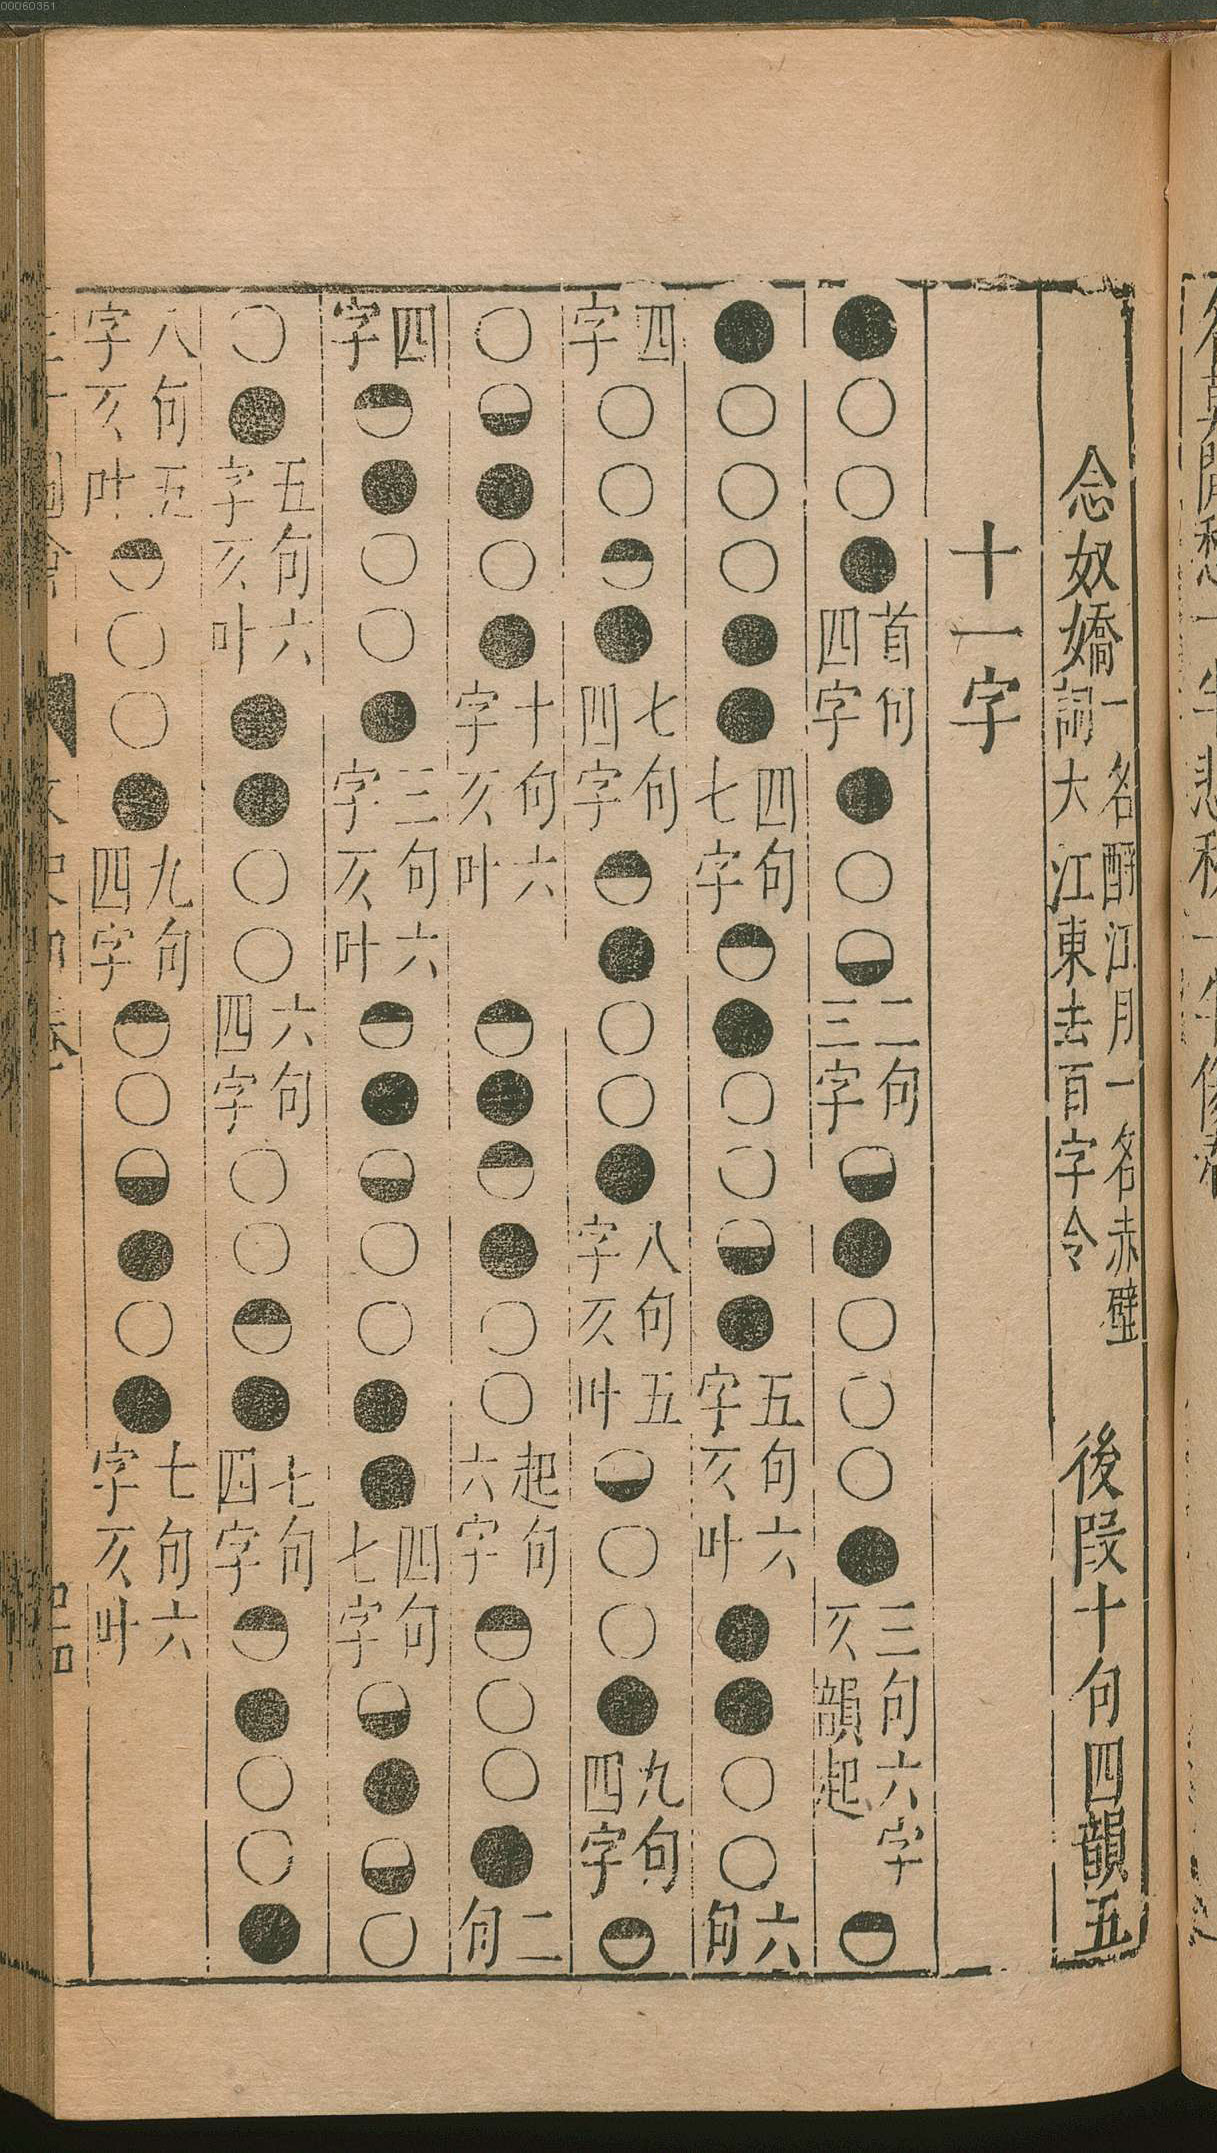 00060351
念奴嬌一名酹江月一名赤壁詞大江東去百字令 後段十句四韻五
十一字
●○○●首句四字●○◒二句三字◒●○○○●三句六字仄韻起◓
●○○○●●四句七字◓●○○◒●五句六字仄叶●●○○六句
四字○○◓●七句四字◓●○○●八句五字仄叶◒○○●九句四字◓
○◒●○●十句六字仄叶 ◓●◓●○○起句六字◓○○●二句
四字◓●○○●三句六字仄叶◓●◒○○●●四句七字◒●◒○
○●五句六字仄叶●●○○六句四字○○◓●七句四字◓●○○●
八句五字仄叶◓○○●九句四字◓○◒●○●七句六字仄叶